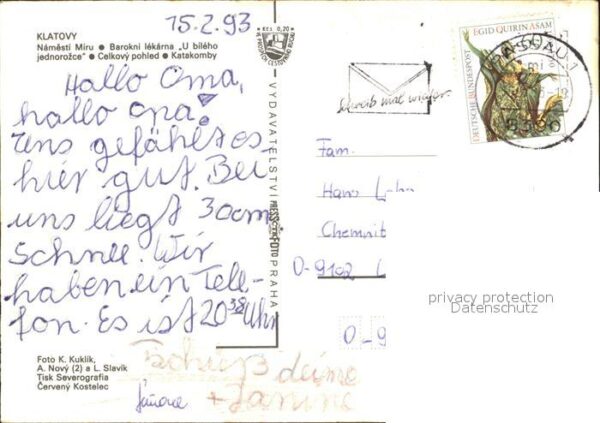 KLATOVY
Náměstí Míru ● Barokní lékárna „U bílého
jednorožce" ● Celkový pohled ● Katakomby
15.2.93
Hallo Oma,
hallo opa!
Uns gefählt es
hier gut. Bei
uns liegt 30cm
Schnee. Wir
haben ein Tele-
fon. Es ist 20 38 Uhr
Tschüß deine
+ Janine
Foto K. Kuklík,
A. Nový (2) a L. Slavík
Tisk Severografia
Červený Kostelec
Kčs 0,20
VYDAVATELSTVÍ PRESSFOTO PRAHA
Schreib mal wieder
EGID QUIRIN ASAM
DEUTSCHE BUNDESPOST
PASSAU 1
Fam.
Hans
Chemnit
O-9102
O-9
privacy protection
Datenschutz